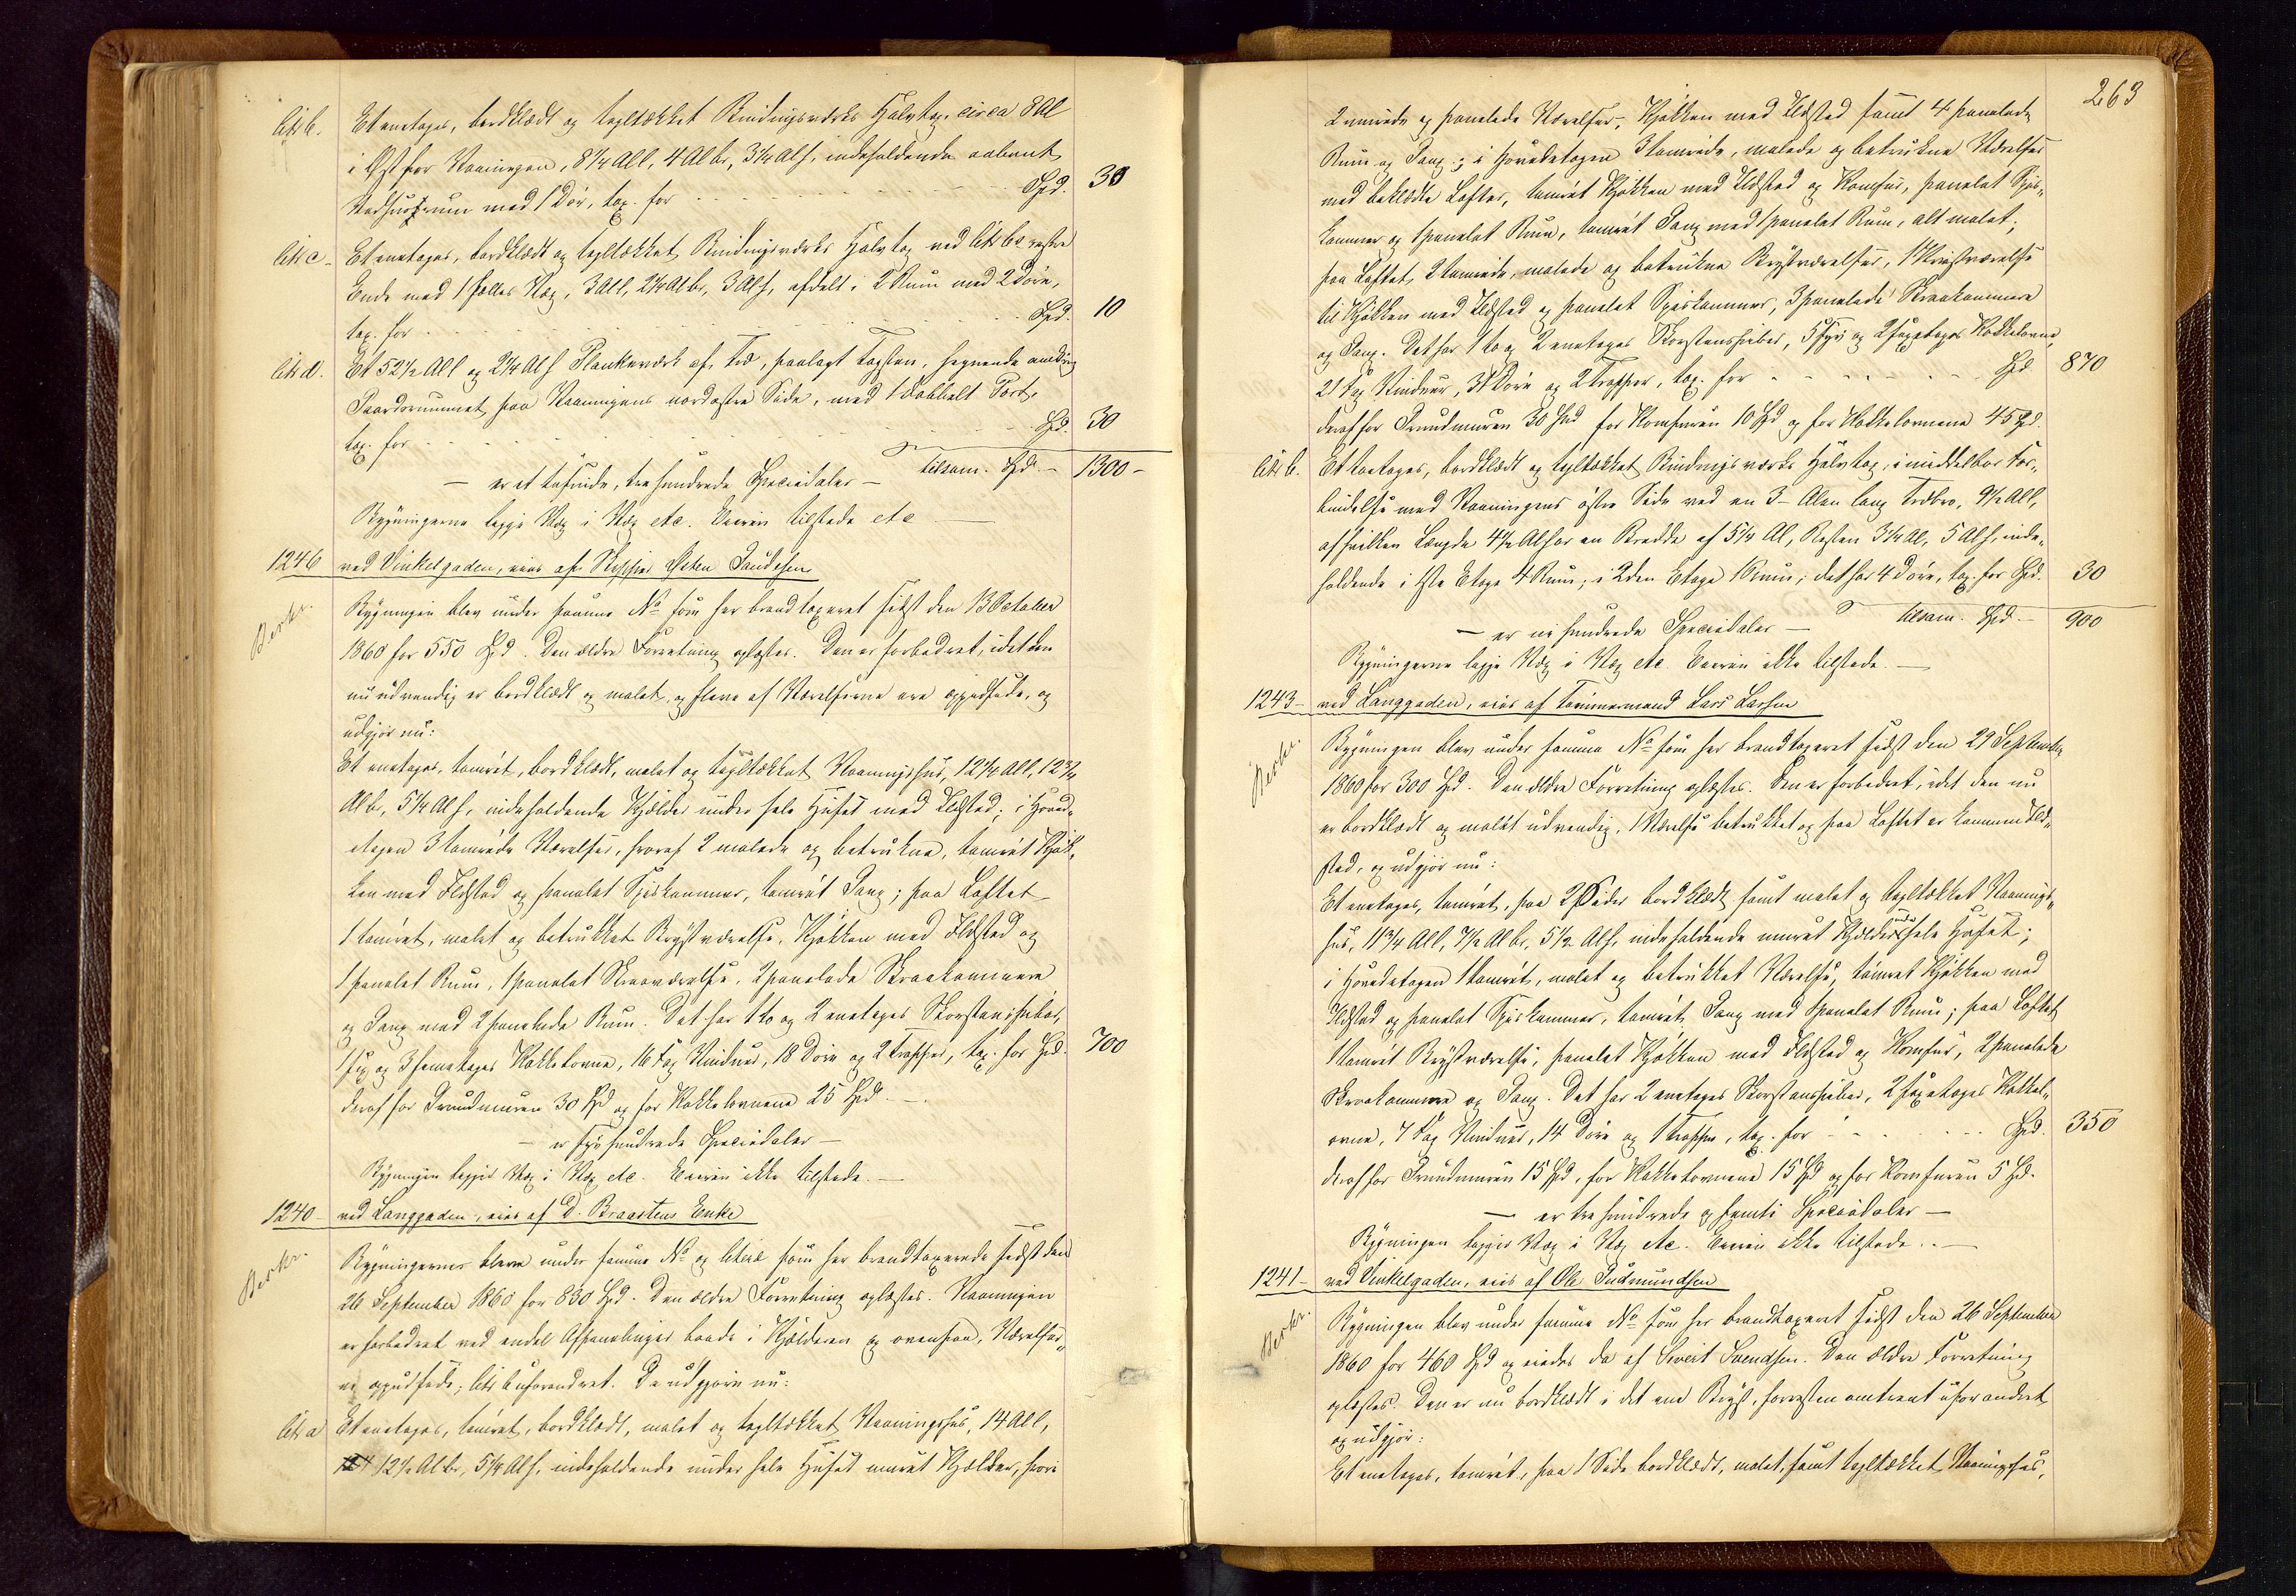 Litr b. Et enetages, bordklædt og tegltækket Bindingsværks Halvtag, circa 8 Al
i Øst for Vaaningen, 8 1/4 All, 4 Al br, 3 1/4 Alh, indeholdende aabent
Vedhusrum med 1 Dør, tax. for - - - Spd. 30
Litr c. Et enetages, bordklædt og tegltækket Bindingsværks Halvtag ved Litr b's vestre
Ende med 1 fælles Væg, 3 All, 2 1/4 Al br, 3 Alh, afdelt i 2 Rum med 2 Døre,
tax. for - - - Spd. 10
Litr d. Et 52 1/2 All og 2 1/4 Alh Plankeværk af Træ, paalagt Tagsten, hegnende omkring
Gaardsrummet paa Vaaningens nordøstre Side, med 1 dobbelt Port,
tax. for - - - Spd. 30
tilsam. Spd. - 1300 -
- er et tusinde, tre hundrede Speciedaler -
Bygningerne ligge Væg i Væg etc. Eieren tilstede etc -
1246 ved Vinkelgaden, eies af Skipper Østen Gundesen
Berkr.
Bygningen blev under samme No som her brandtaxeret sidst den 13 October
1860 for 550 Spd. Den ældre Forretning oplæstes. Den er forbedret, idet den
nu udvendig er bordklædt og malet og flere af Værelserne ere oppudsede, og
udgjør nu:
Et enetages, tømret, bordklædt, malet og tegltækket Vaaningshus, 12 1/4 All, 12 3/4
Al br, 5 1/4 Al h, indeholdende Kjælder under hele Huset med Ildsted; i Hoved-
etagen 3 tømrede Værelser, hvoraf 2 malede og betrukne, tømret Kjøk-
ken med Ildsted og panelet Spiskammer, tømret Gang; paa Loftet
1 tømret, malet og betrukket Brystværelse, Kjøkken med Ildsted og
1 panelet Rum, 1 panelet Skraaværelse, 2 panelede Skraakammere
og Gang med 2 panelede Rum. Det har 1 to og 2 enetages Skorstenspiber,
1 sex og 3 femetages Kakkelovne, 16 Fag Vinduer, 18 Døre og 2 Trapper, tax. for Spd. 700
deraf for Grundmuren 30 Spd og for Kakkelovnene 25 Spd. -
- er syv hundrede Speciedaler -
Bygningen ligger Væg i Væg etc. Eieren ikke tilstede. -
1240 - ved Langgaden, eies af D. Braastens Enke
Berkr.
Bygningerne bleve under samme No og Litera som her brandtaxerede sidst den
26 September 1860 for 830 Spd. Den ældre Forretning oplæstes. Vaaningen
er forbedret ved endel Afpanelinger baade i Kjælderen og ovenpaa, Værelser-
ne oppudsede; Litr b uforandret. De udgjøre nu:
Litr a Et enetages, tømret, bordklædt, malet og tegltækket Vaaningshus, 14 All,
12 1/2 Al br, 5 1/4 Al h, indeholdende under hele Huset muret Kjælder, hvori
263
2 murede og panelede Værelser, Kjøkken med Ildsted samt 4 panelede
Rum og Gang; i Hovedetagen 3 tømrede, malede og betrukne Værelser
med beklædte Lofter, tømret Kjøkken med Ildsted og Komfur, panelet Spis-
kammer og 1 panelet Rum, tømret Gang med 1 panelet Rum, alt malet;
paa Loftet 2 tømrede, malede og betrukne Brystværelser, 1 Kvistværelse
til Kjøkken med Ildsted og panelet Spiskammer, 3 panelede Skraakammere
og Gang. Det har 1 to og 2 enetages Skorstenspiber, 5 fyr og 2 sexetages Kakkelovne,
21 Fag Vinduer, 31 Døre og 2 Trapper, tax. for - - - Spd. 870
deraf for Grundmuren 30 Spd for Komfuren 10 Spd og for Kakkelovnene 45 Spd.
Litr b. Et toetages, bordklædt og tegltækket Bindingsværks Halvtag, i middelbar For-
bindelse med Vaaningens østre Side ved en 3 - Alen lang Træbro, 9 1/2 All,
af hvilken Længde 4 1/2 Al har en Bredde af 5 1/4 Al, Resten 3 1/4 Al, 5 Al h, inde-
holdende i 1ste Etage 4 Rum; i 2den Etage 1 Rum; det har 4 Døre, tax. for Spd. 30
tilsam. Spd. - 900
- er ni hundrede Speciedaler -
Bygningerne ligge Væg i Væg etc. Eieren ikke tilstede. -
1243 - ved Langgaden, eies af Tømmermand Lars Larsen
Berkr.
Bygningen blev under samme No som her brandtaxeret sidst den 29 September
1860 for 300 Spd. Den ældre Forretning oplæstes. Den er forbedret, idet den nu
er bordklædt og malet udvendig, 1 Værelse betrukket og paa Loftet er kommen Ild-
sted, og udgjør nu:
Et enetages, tømret, paa 2 Sider bordklædt samt malet og tegltækket Vaanings-
hus, 11 3/4 All, 7 1/2 Al br, 5 1/2 Al h, indeholdende muret Kjælder under hele Huset;
i Hovedetagen 1 tømret, malet og betrukket Værelse, tømret Kjøkken med
Ildsted og panelet Spiskammer, tømret Gang med 1 panelet Rum; paa Loftet
1 tømret Brystværelse, panelet Kjøkken med Ildsted og Komfur, 2 panelede
Skraakammere og Gang. Det har 2 enetages Skorstenspiber, 2 sexetages Kakkel-
ovne, 7 Fag Vinduer, 14 Døre og 1 Trappe, tax. for - - - Spd. 350
deraf for Grundmuren 15 Spd, for Kakkelovnene 15 Spd og for Komfuren 5 Spd.
- er tre hundrede og femti Speciedaler -
Bygningen ligger Væg i Væg etc. Eieren ikke tilstede. -
1241 - ved Vinkelgaden, eies af Ole Gudmundsen
Berkr.
Bygningen blev under samme No som her brandtaxeret sidst den 26 September
1860 for 460 Spd og eiedes da af Sivert Svendsen. Den ældre Forretning
oplæstes. Den er nu bordklædt i det ene Bryst, forresten omtrent uforandret
og udgjør:
Et enetages, tømret, paa 1 Side bordklædt, malet, samt tegltækket Vaaningshus,